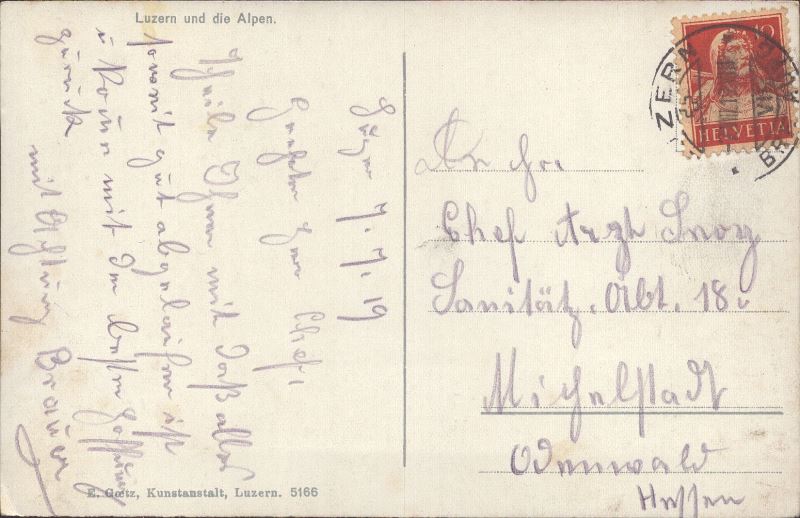 Luzern und die Alpen.
7.7.19
Geehrter Herr Chef,
Teile Ihnen mit daß alles
soweit gut abgelaufen ist
u komme mit den besten Hoffnung
zurück
mit Achtung Brauer
E. Goetz, Kunstanstalt, Luzern. 5166
HELVETIA
LUZERN
An Hr.
Chef Arzt
Sanität. Abt. 18.
Michelstadt
Odenwald
Hessen